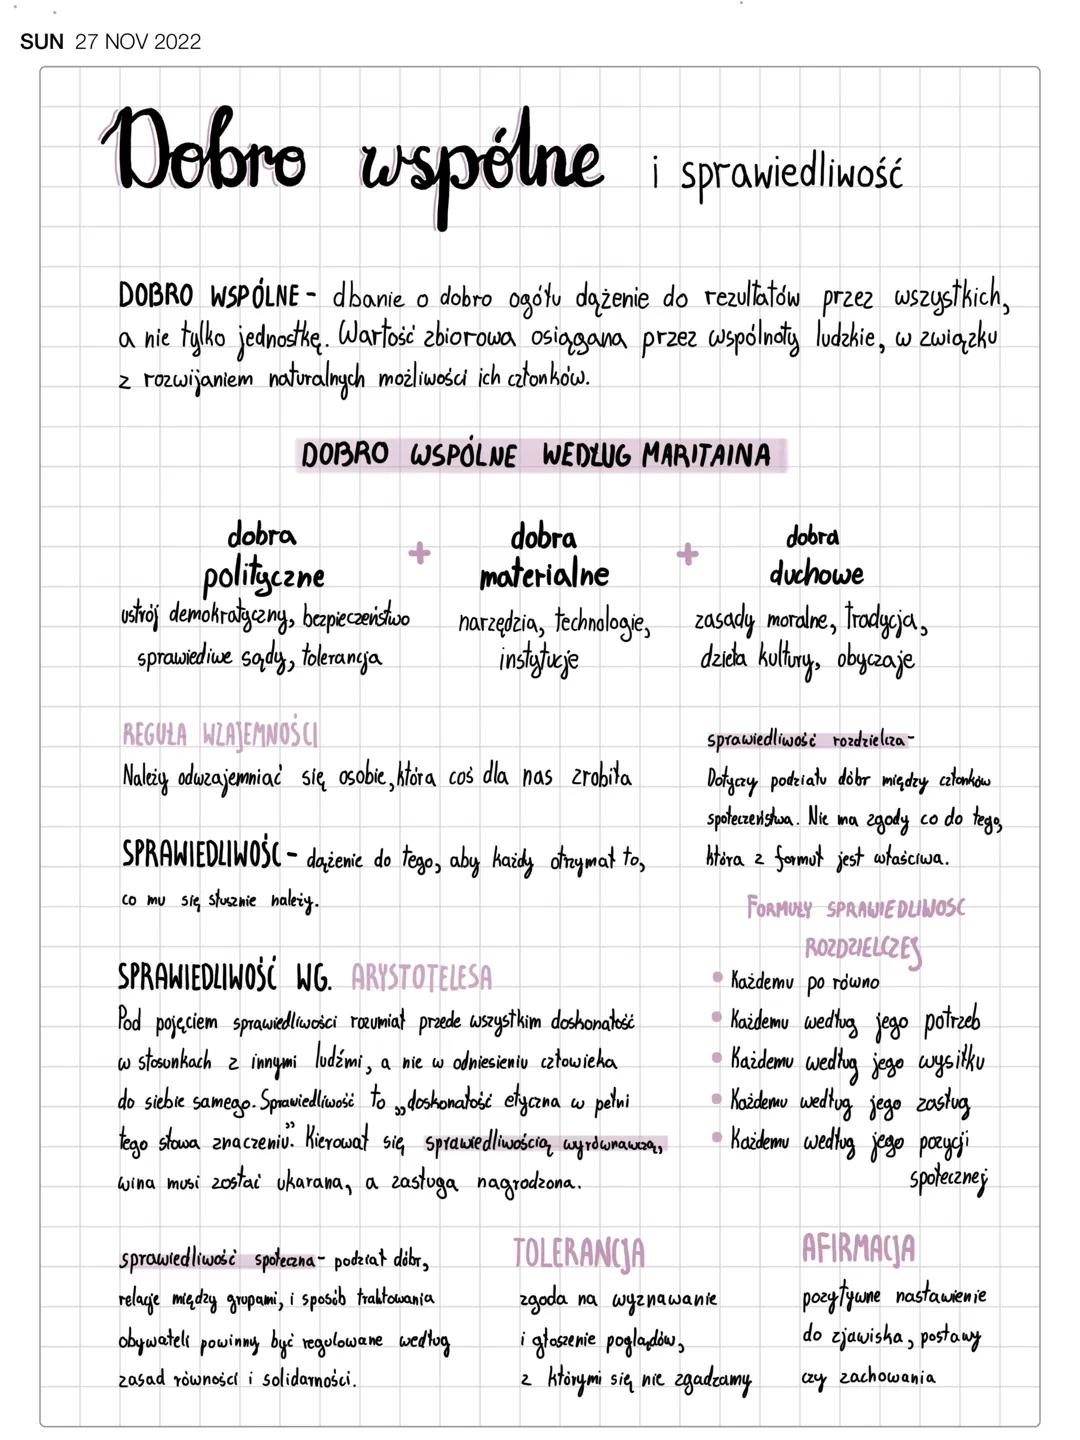 SUN 27 NOV 2022
Dobro wspólne i sprawiedliwość
DOBRO WSPÓLNE - dbanie o dobro ogółu dążenie do rezultatów przez wszystkich,
a nie tylko jednostkę. Wartość zbiorowa osiągana przez wspólnoty ludzkie, w związku
z rozwijaniem naturalnych możliwości ich członków.
DOBRO WSPÓLNE WEDŁUG MARITAINA
dobra
polityczne
ustrój demokratyczny, bezpieczeństwo
sprawiediwe sądy, tolerancja
+
dobra
materialne
narzędzia, technologie,
instytucje
+
dobra
duchowe
zasady moralne, tradycja,
dzieła kultury, obyczaje
REGUŁA WZAJEMNOŚCI
Należy odwzajemniać się osobie, która coś dla nas zrobiła
SPRAWIEDLIWOŚĆ - dążenie do tego, aby każdy otrzymał to,
co mu się słusznie należy.
sprawiedliwość rozdzielcza-
Dotyczy podziału dóbr między członków
społeczeństwa. Nie ma zgody co do tego,
która z formuł jest właściwa.
FORMUŁY SPRAWIEDLIWOSC
ROZDZIELCZEJ
• Każdemu po równo
• Każdemu według jego potrzeb
• Każdemu według jego wysiłku
• Każdemu według jego zasług
• Każdemu według jego pozycji
społecznej
SPRAWIEDLIWOŚĆ WG. ARYSTOTELESA
Pod pojęciem sprawiedliwości rozumiał przede wszystkim doskonałość
w stosunkach z innymi ludźmi, a nie w odniesieniu człowieka
do siebie samego. Sprawiedliwość to „doskonałość etyczna w pełni
tego słowa znaczeniu”. Kierował się sprawiedliwością wyrównawczą,
wina musi zostać ukarana, a zasługa nagrodzona.
sprawiedliwość społeczna - podział dóbr,
relacje między grupami, i sposób traktowania
obywateli powinny być regulowane według
zasad równości i solidarności.
TOLERANCJA
zgoda na wyznawanie
i głoszenie poglądów,
z którymi się nie zgadzamy
AFIRMACJA
pozytywne nastawienie
do zjawiska, postawy
czy zachowania